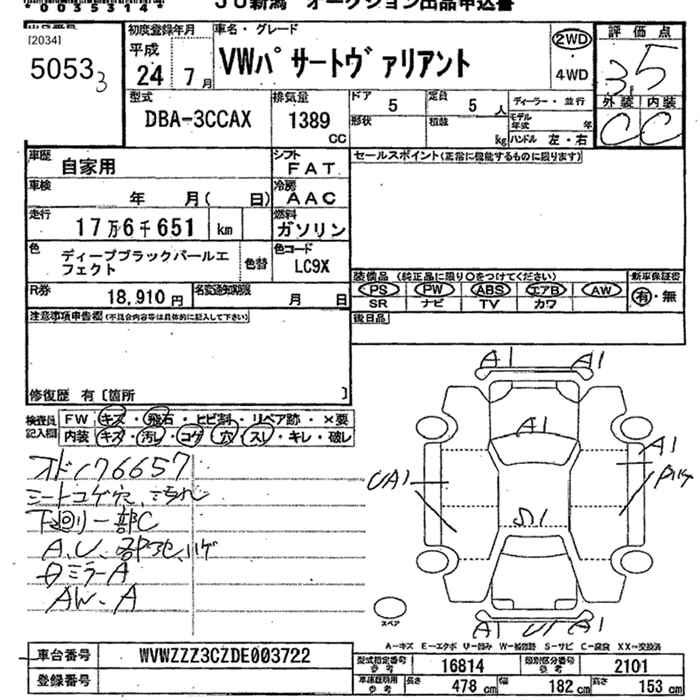 *0035314*
JU新潟 オークション出品申込書
[2034]
50533
初度登録年月
平成
24年7月
車名・グレード
VWパサートヴァリアント
2WD
・4WD
評価点
3.5
外装 内装
C C
型式
DBA-3CCAX
排気量
1389
CC
ドア 5
定員 5 人
ディーラー・並行
形状
積載
kg
モデル年式 年
ハンドル 左・右
車歴
自家用
シフト
FAT
セールスポイント(正常に機能するものに限ります)
車検
年 月( 日)
冷房
AAC
走行
17万6千651 km
燃料
ガソリン
色
ディープブラックパールエフェクト
色替
色コード
LC9X
R券
18,910円
名変通知期限
月 日
装備品(純正品に限り○をつけてください)
新車保証書
PS PW ABS エアB AW
有・無
SR ナビ TV カワ
後日品
注意事項申告欄(不具合内容等は具体的に記入して下さい)
修復歴 有〔箇所 〕
検査員記入欄
FW キズ・飛石・ヒビ割・リペア跡・×要
内装 キズ・汚レ・コゲ・穴・スレ・キレ・破レ
オド176657
シートコゲ穴、ヨゴレ
下廻リ一部C
ミラーA
AW.A
A1 A1
A1
A1
UA1
S1
A1 A1
スペア
A-キズ E-エクボ U-凹み W-補修跡 S-サビ C-腐食 XX-交換済
車台番号
WVWZZZ3CZDE003722
登録番号
型式指定番号 参考
16814
類別区分番号 参考
2101
車検証明用 参考
長さ 478 cm
幅 182 cm
高さ 153 cm